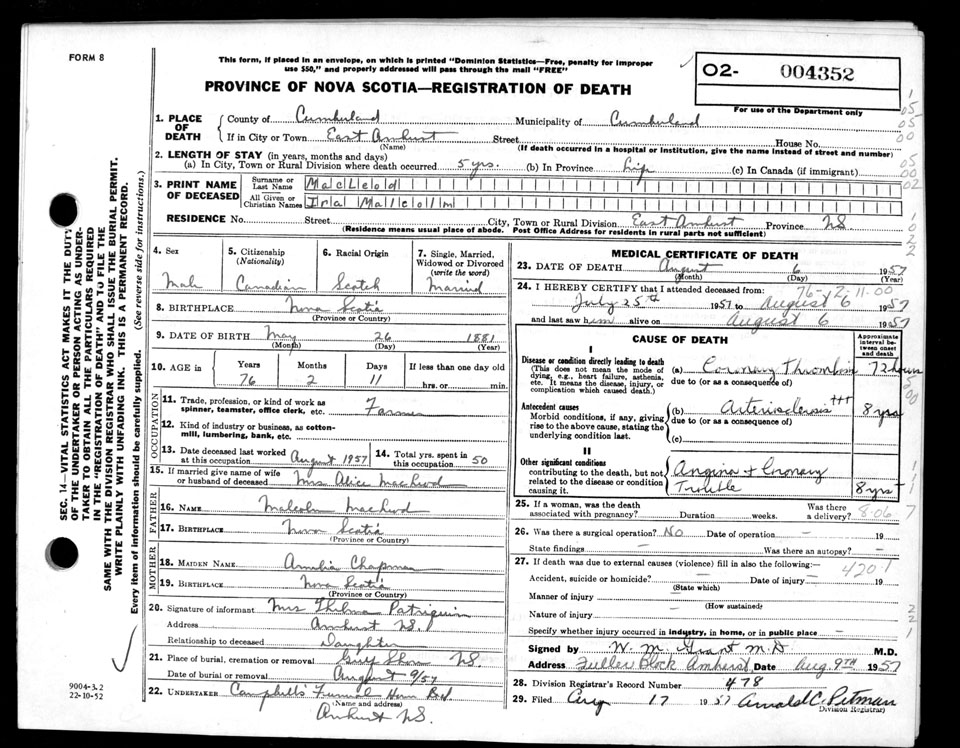 FORM 8
This form, if placed in an envelope, on which is printed "Dominion Statistics—Free, penalty for improper
use $50," and properly addressed will pass through the mail "FREE"
PROVINCE OF NOVA SCOTIA—REGISTRATION OF DEATH
02- 004352
For use of the Department only
1. PLACE OF DEATH
County of Cumberland Municipality of Cumberland
If in City or Town East Amherst Street House No.
(Name) (If death occurred in a hospital or institution, give the name instead of street and number)
2. LENGTH OF STAY (in years, months and days)
(a) In City, Town or Rural Division where death occurred 5 yrs. (b) In Province life (c) In Canada (if immigrant)
3. PRINT NAME OF DECEASED
Surname or Last Name MacLeod
All Given or Christian Names Ira Malcolm
RESIDENCE No. Street City, Town or Rural Division East Amherst Province NS
(Residence means usual place of abode. Post Office Address for residents in rural parts not sufficient)
4. Sex Male
5. Citizenship (Nationality) Canadian
6. Racial Origin Scotch
7. Single, Married, Widowed or Divorced (write the word) Married
8. BIRTHPLACE Nova Scotia
(Province or Country)
9. DATE OF BIRTH May 26 1881
(Month) (Day) (Year)
10. AGE in Years Months Days If less than one day old
76 2 11 hrs. or min.
OCCUPATION
11. Trade, profession, or kind of work as spinner, teamster, office clerk, etc. Farmer
12. Kind of industry or business, as cotton-mill, lumbering, bank, etc.
13. Date deceased last worked at this occupation August 1957
14. Total yrs. spent in this occupation 50
15. If married give name of wife or husband of deceased Mrs Alice MacLeod
FATHER
16. NAME Malcolm MacLeod
17. BIRTHPLACE Nova Scotia
(Province or Country)
MOTHER
18. MAIDEN NAME Amelia Chapman
19. BIRTHPLACE Nova Scotia
(Province or Country)
20. Signature of informant Mrs Thelma Patriquin
Address Amherst NS.
Relationship to deceased Daughter
21. Place of burial, cremation or removal Shore NS.
Date of burial or removal August 9/57
22. UNDERTAKER Campbells' Funeral Home
(Name and address)
Amherst NS.
MEDICAL CERTIFICATE OF DEATH
23. DATE OF DEATH August 6 1957
(Month) (Day) (Year)
76-12-11-00
24. I HEREBY CERTIFY that I attended deceased from:
July 25th 1957 to August 6 1957
and last saw him alive on August 6 1957
CAUSE OF DEATH
Approximate interval between onset and death
I
Disease or condition directly leading to death
(This does not mean the mode of dying, e.g., heart failure, asthenia, etc. It means the disease, injury, or complication which caused death.)
(a) Coronary Thrombosis 72 hours
due to (or as a consequence of)
Antecedent causes
Morbid conditions, if any, giving rise to the above cause, stating the underlying condition last.
(b) Arteriosclerosis +++ 8 yrs
due to (or as a consequence of)
(c)
II
Other significant conditions
contributing to the death, but not related to the disease or condition causing it.
Angina + Coronary Trouble 8 yrs +
25. If a woman, was the death associated with pregnancy? Duration weeks. Was there a delivery?
8-06
26. Was there a surgical operation? No Date of operation — 19
State findings — Was there an autopsy? —
27. If death was due to external causes (violence) fill in also the following:—
4201
Accident, suicide or homicide? — Date of injury — 19
(State which)
Manner of injury —
(How sustained)
Nature of injury —
Specify whether injury occurred in industry, in home, or in public place —
Signed by W. M. Grant M.D. M.D.
Address Fuller Block Amherst Date Aug. 9TH 1957
28. Division Registrar's Record Number 478
29. Filed Aug 17 1957 Arnold C. Pitman
Division Registrar
SEC. 14—VITAL STATISTICS ACT MAKES IT THE DUTY
OF THE UNDERTAKER OR PERSON ACTING AS UNDER-
TAKER TO OBTAIN ALL THE PARTICULARS REQUIRED
IN THE "REGISTRATION OF DEATH" AND TO FILE THE
SAME WITH THE DIVISION REGISTRAR WHO SHALL ISSUE THE BURIAL PERMIT.
WRITE PLAINLY WITH UNFADING INK. THIS IS A PERMANENT RECORD.
Every item of information should be carefully supplied. (See reverse side for instructions.)
9004-3.2
22-10-52